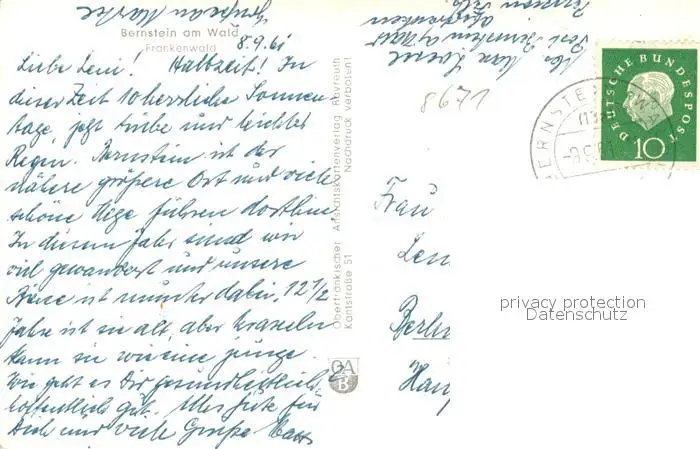 Bernstein am Wald
Frankenwald
8.9.61
Liebe Leni! Halbzeit! In
dieser Zeit 10 herzliche Sonnen-
tage, jetzt trübe und leichter
Regen. Bernstein ist der
nähere größere Ort und viele
schöne Wege führen dorthin.
In diesem Jahr sind wir
viel gewandert und unsere
ist munter dabei, 12 1/2
Jahre ist sie alt, aber kraxeln
kann sie wie eine junge.
Wie geht es Dir gesundheitlich,
hoffentlich gut. Alles Gute für
Dich und viele Grüße
Oberfränkischer Ansichtskartenverlag Bayreuth
Kantstraße 51 Nachdruck verboten!
OAB
8671
DEUTSCHE BUNDESPOST
10
BERNSTEIN
Frau
Len
Berlin
privacy protection
Datenschutz